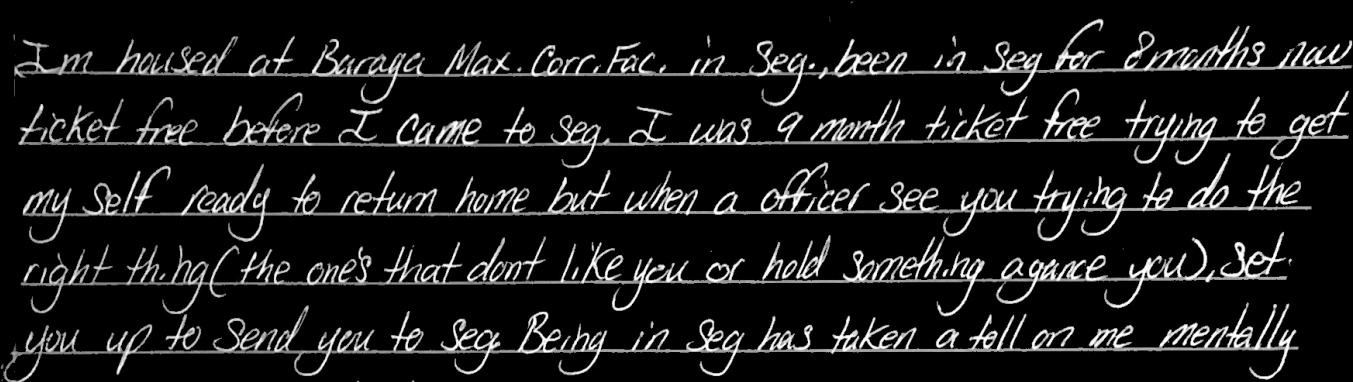 Im housed at Baraga Max. Corr. Fac. in Seg., been in seg for 8 months now
ticket free before I came to seg. I was 9 month ticket free trying to get
my self ready to return home but when a officer see you trying to do the
right thing (the one's that dont like you or hold something agance you), set
you up to send you to seg. Being in seg has taken a toll on me mentally